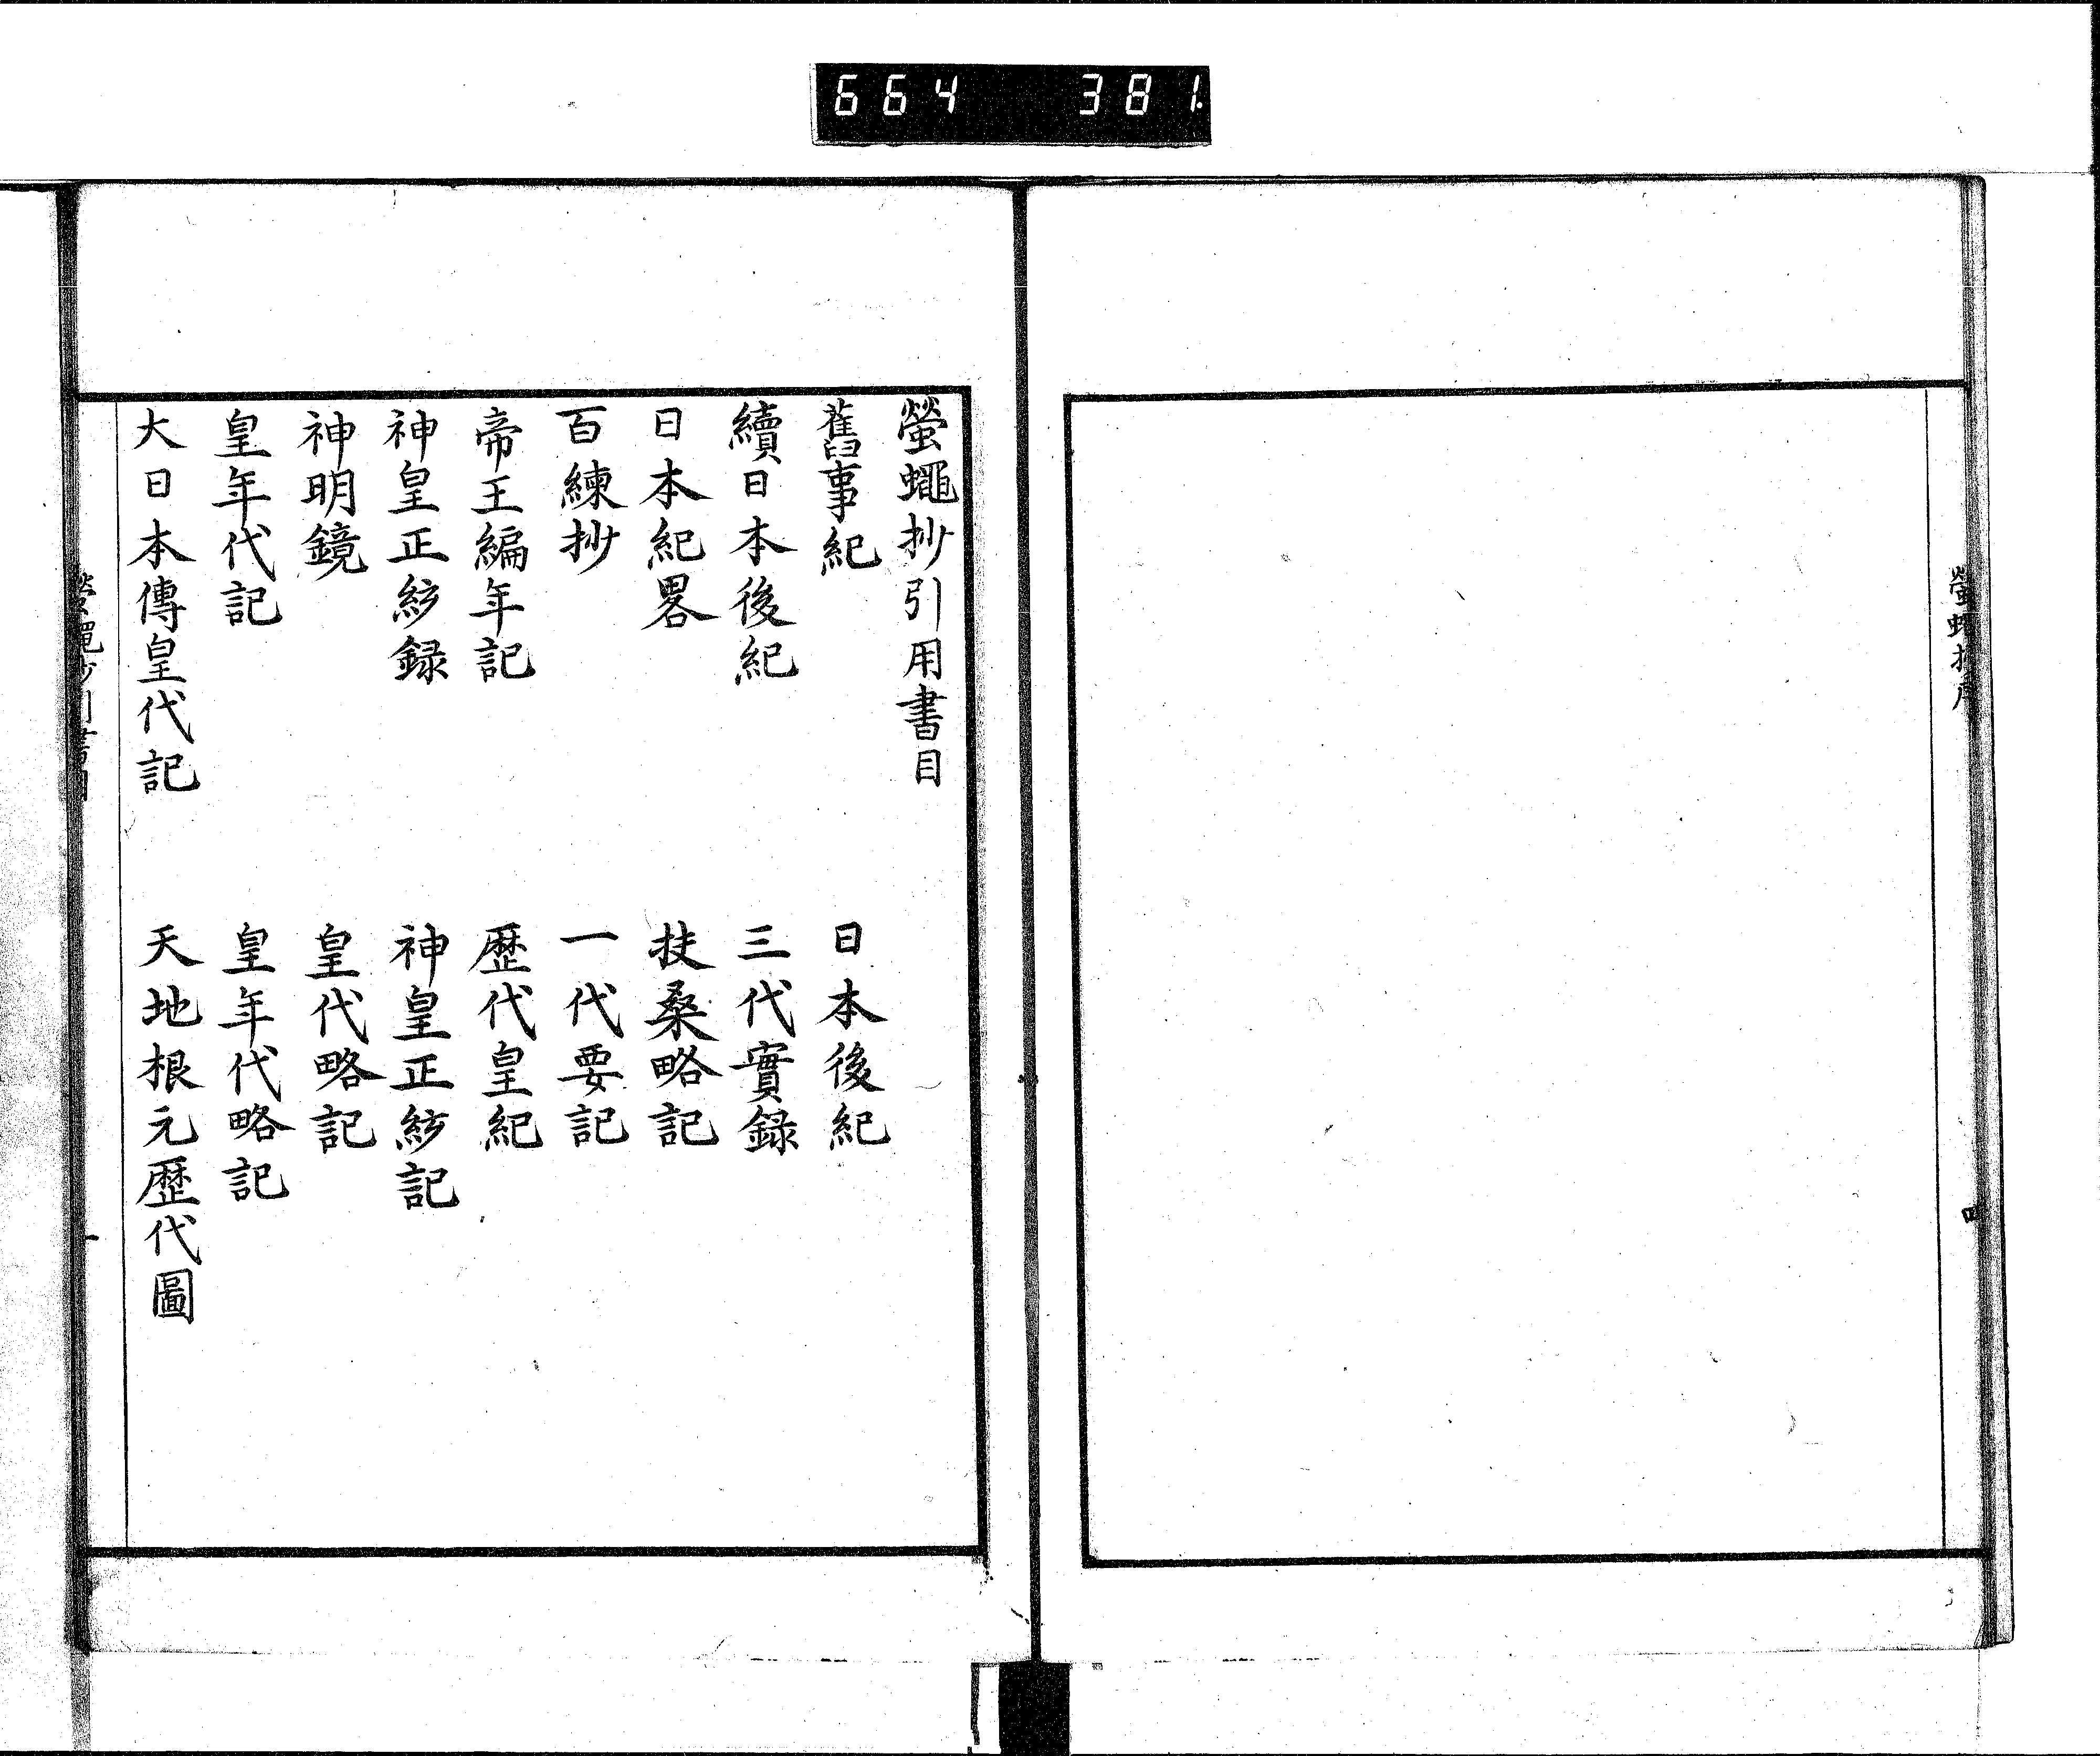 664 381
螢蠅抄序
四
螢蠅抄引用書目
舊事紀 日本後紀
續日本後紀 三代實録
日本紀畧 扶桑略記
百練抄 一代要記
帝王編年記 歴代皇紀
神皇正統録 神皇正統記
神明鏡 皇代略記
皇年代記 皇年代略記
大日本傳皇代記 天地根元歴代圖
螢蠅抄引書目
一